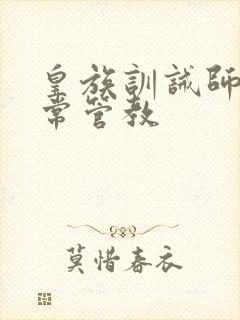 皇族訓誡師
常管教
莫惜春衣